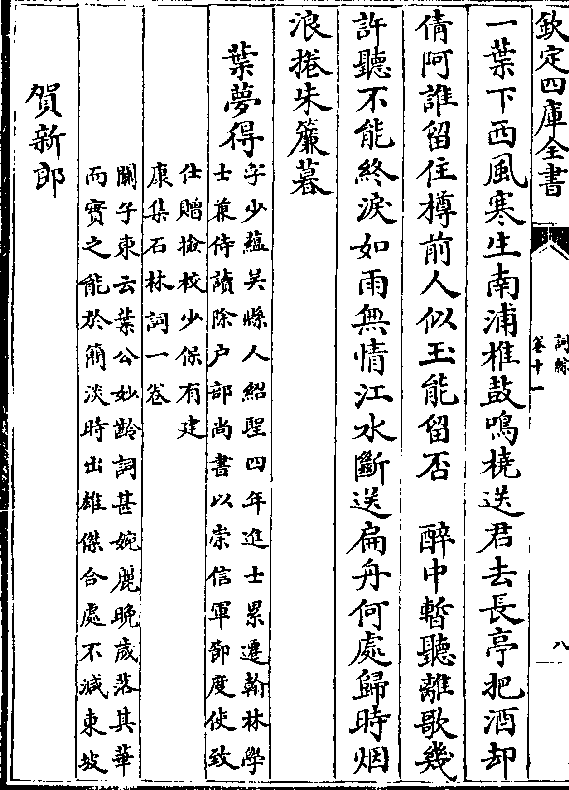 欽定四庫全書
詞綜
卷十一
八
一葉下西風寒生南浦椎鼓鳴橈送君去長亭把酒却
倩阿誰留住樽前人似玉能留否　醉中暫聽離歌幾
許聽不能終淚如雨無情江水斷送扁舟何處歸時烟
浪捲朱簾暮
葉夢得
字少蘊吳縣人紹聖四年進士累遷翰林學
士兼侍讀除户部尚書以崇信軍節度使致
仕贈撿校少保有建
康集石林詞一卷
關子東云葉公妙齡詞甚婉麗晚歲落其華
而實之能於簡淡時出雄傑合處不減東坡
賀新郎